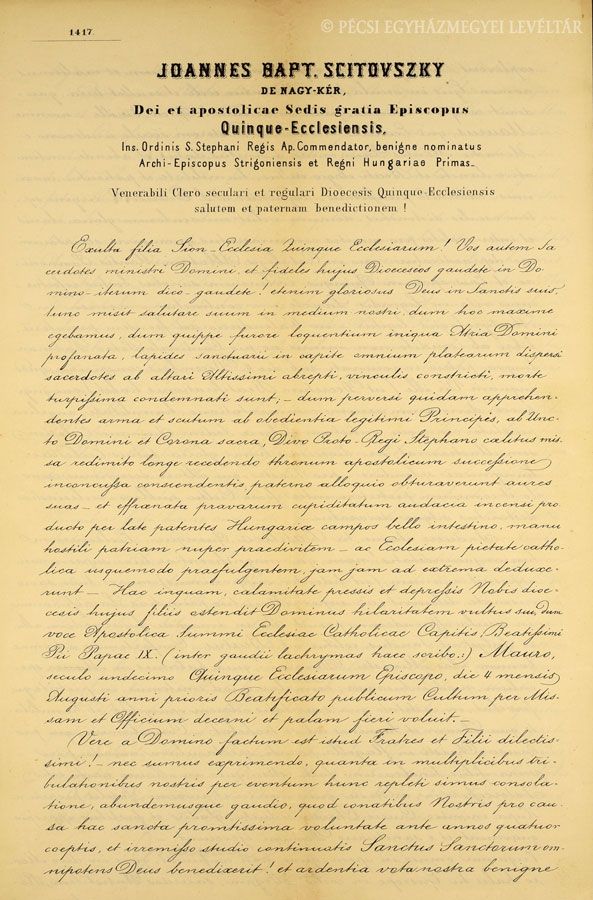 © PÉCSI EGYHÁZMEGYEI LEVÉLTÁR
1417
JOANNES BAPT. SCITOVSZKY
DE NAGY-KÉR,
Dei et apostolicae Sedis gratia Episcopus
Quinque-Ecclesiensis,
Ins. Ordinis S. Stephani Regis Ap. Commendator, benigne nominatus
Archi-Episcopus Strigoniensis et Regni Hungariae Primas.
Venerabili Clero seculari et regulari Dioecesis Quinque-Ecclesiensis
salutem et paternam benedictionem!
Exulta filia Sion – Ecclesia Quinque Ecclesiarum! Vos autem Sa
cerdotes ministri Domini, et fideles hujus Dioeceseos gaudete in Do-
mino – iterum dico – gaudete! etenim gloriosus Deus in Sanctis suis,
tunc misit salutare suum in medium nostri, dum hoc maxime
egebamus, dum quippe furore loquentium iniqua Atria Domini
profanata, lapides sanctuarii in capite omnium platearum dispersi
sacerdotes ab altari Altissimi abrepti, vinculis constricti, morte
turpissima condemnati sunt, – dum perversi quidam apprehen-
dentes arma et scutum ab obedientia legitimi Principis, ab Unc-
to Domini et Corona sacra, Divo Proto-Regi Stephano caelitus mis-
sa redimito longe recedendo thronum apostolicum successione
inconcussa conscendentis, paterno alloquio obturaverunt aures
suas – et effraenata pravarum cupiditatum audacia incensi pro
ducto per late patentes Hungariae campos bello intestino, manu
hostili patriam nuper praedivitem – ac Ecclesiam pietate catho-
lica usquemodo praefulgentem, jam jam ad extrema deduxe-
runt – Hac inquam, calamitate pressis et depressis Nobis dioe-
cesis hujus filiis ostendit Dominus hilaritatem vultus sui, dum
voce Apostolica Summi Ecclesiae Catholicae Capitis, Beatissimi
Pii Papae IX. (inter gaudii lachrymas haec scribo:) Mauro,
seculo undecimo Quinque Ecclesiarum Episcopo, die 4 mensis
Augusti anni prioris Beatificato publicum Cultum per Mis-
sam et Officium decerni et palam fieri voluit. –
Vere a Domino factum est istud Fratres et Filii dilectis-
simi! – nec sumus exprimendo, quanta in multiplicibus tri-
bulationibus nostris per eventum hunc repleti simus consola-
tione, abundemusque gaudio, quod conatibus Nostris pro cau-
sa hac sancta promtissima voluntate ante annos quatuor
coeptis, et irremisso studio continuatis Sanctus Sanctorum om-
nipotens Deus benedixerit! et ardentia vota nostra benigne